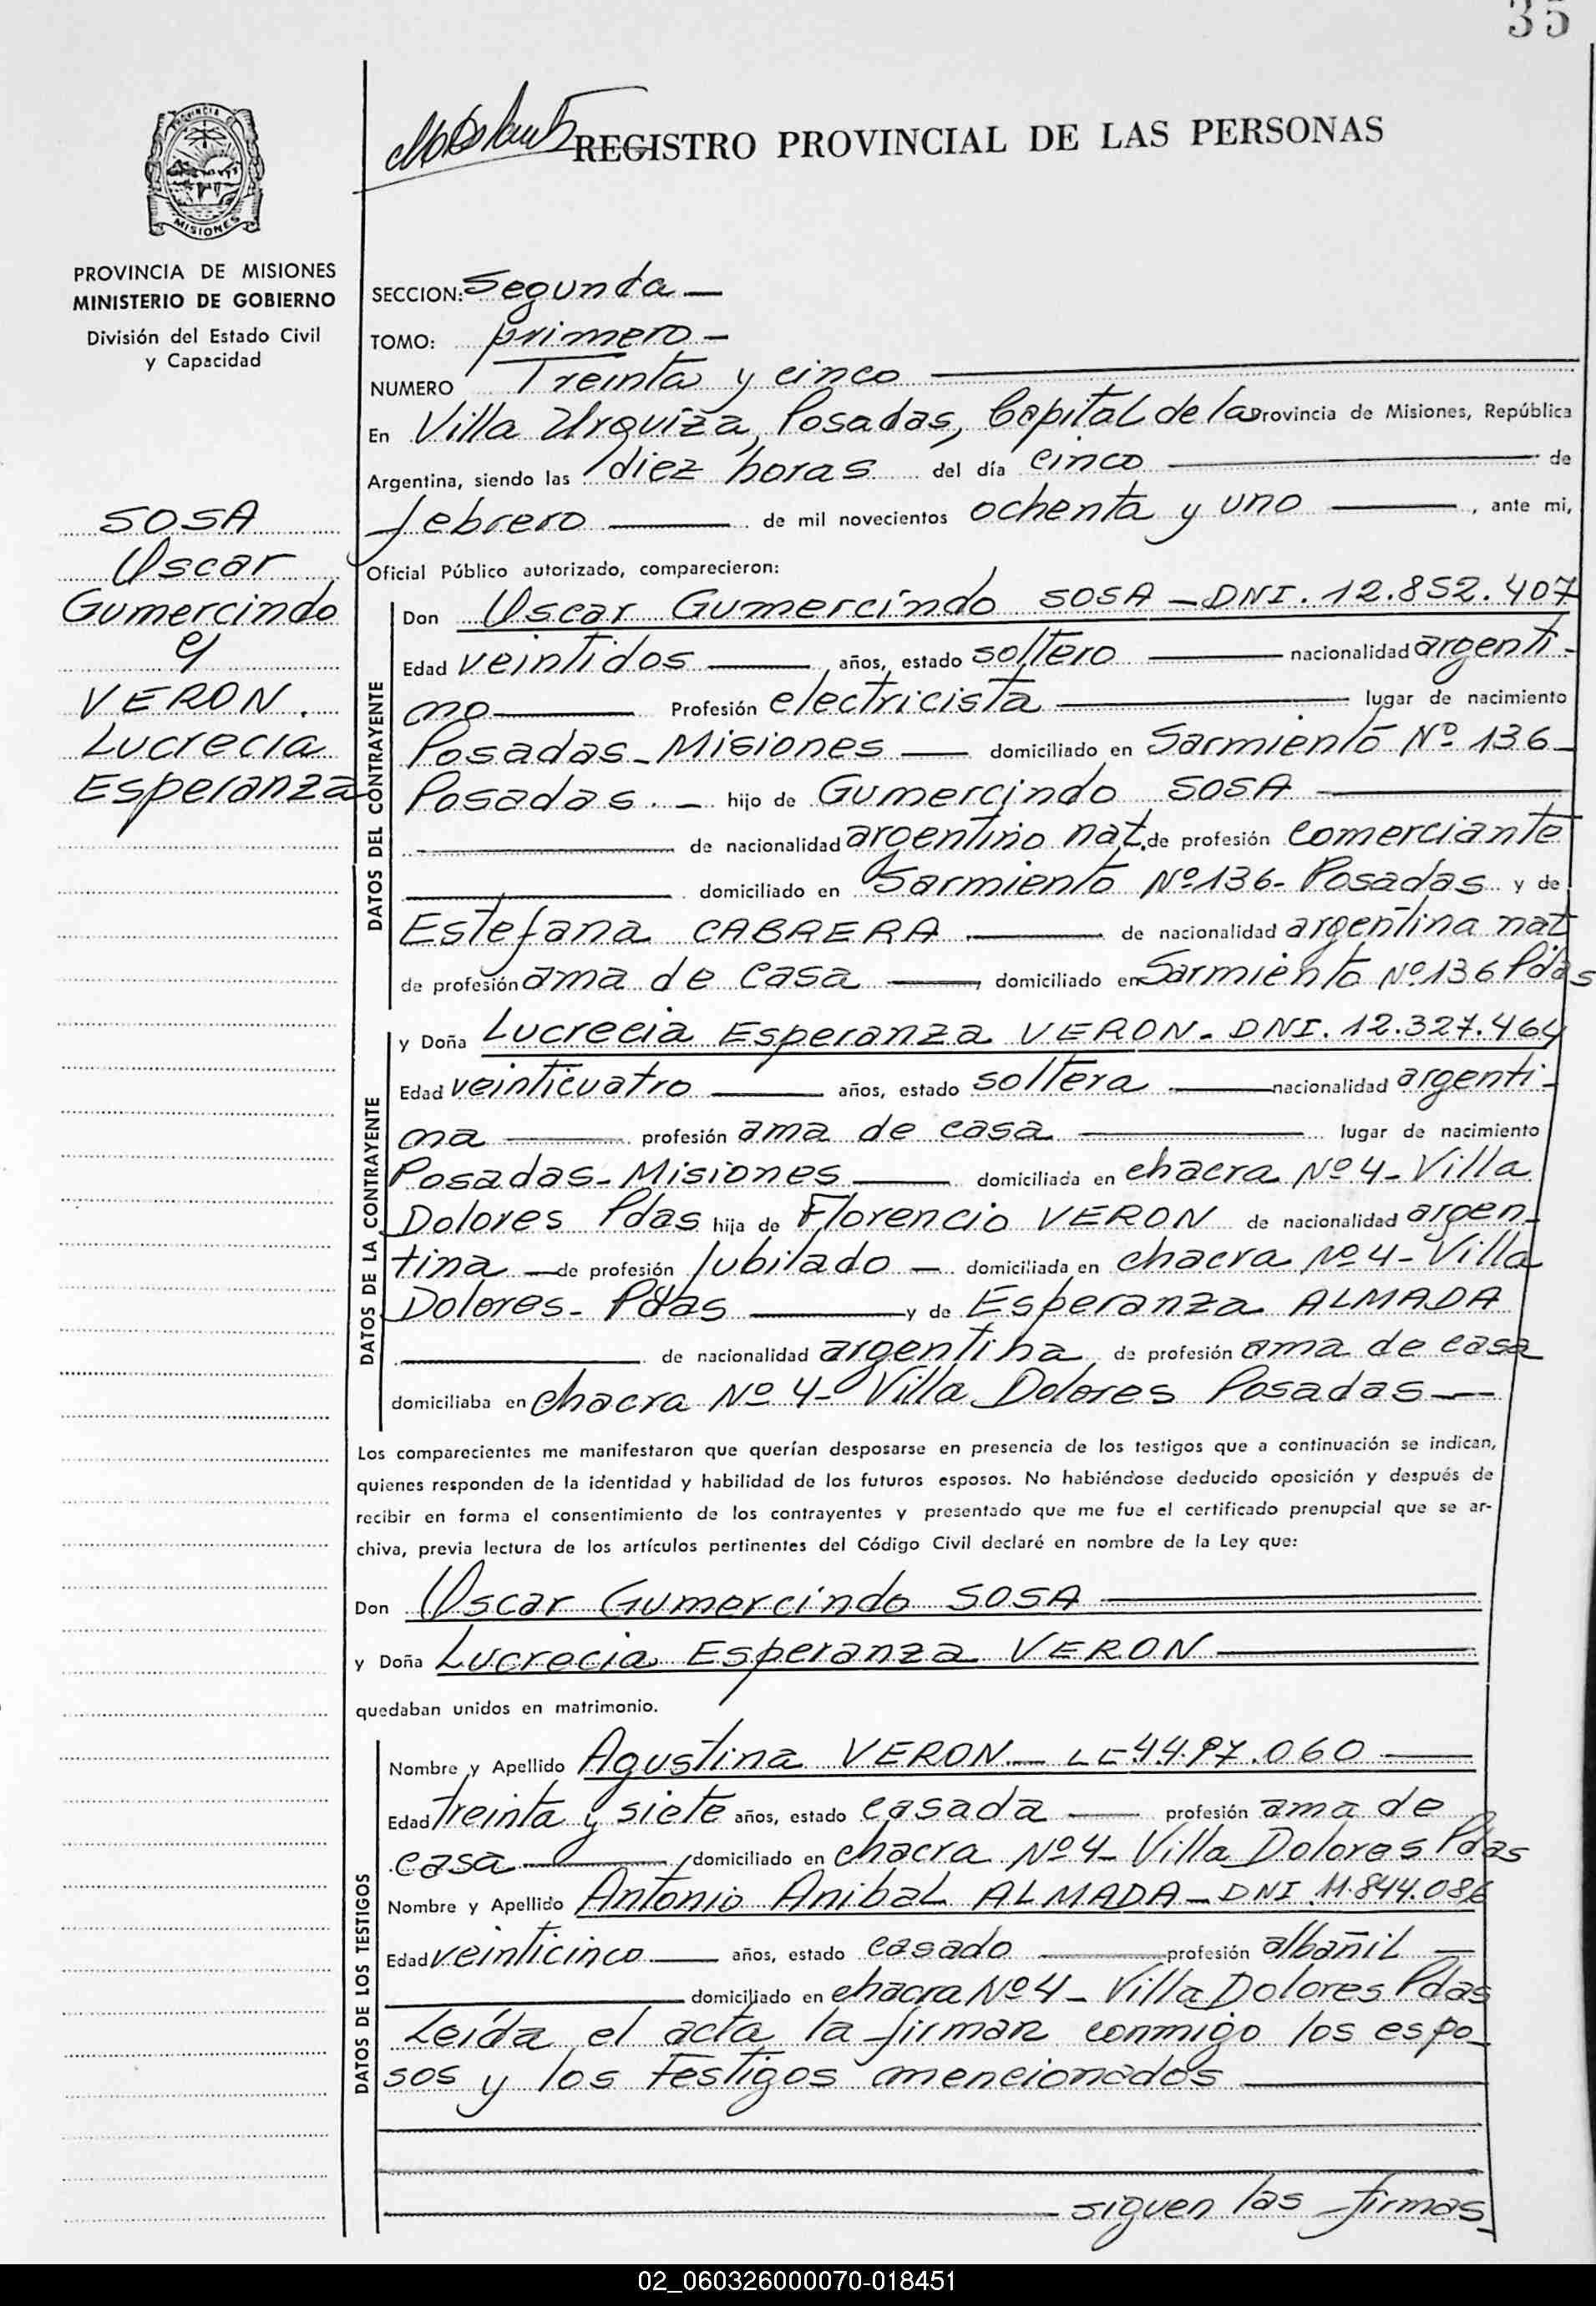 35
REGISTRO PROVINCIAL DE LAS PERSONAS
PROVINCIA DE MISIONES
MINISTERIO DE GOBIERNO
División del Estado Civil
y Capacidad
SOSA
Oscar
Gumercindo
y
VERON.
Lucrecia
Esperanza
SECCION: Segunda —
TOMO: primero —
NUMERO Treinta y cinco —
En Villa Urquiza, Posadas, Capital de la Provincia de Misiones, República
Argentina, siendo las diez horas del día cinco — de
febrero — de mil novecientos ochenta y uno —, ante mi,
Oficial Público autorizado, comparecieron:
DATOS DEL CONTRAYENTE
Don Oscar Gumercindo SOSA — DNI. 12.852.407
Edad veintidos — años, estado soltero — nacionalidad argenti-
no — Profesión electricista — lugar de nacimiento
Posadas - Misiones — domiciliado en Sarmiento Nº 136 -
Posadas. — hijo de Gumercindo SOSA —
— de nacionalidad argentino nat. de profesión comerciante
— domiciliado en Sarmiento Nº 136 - Posadas y de
Estefana CABRERA — de nacionalidad argentina nat
de profesión ama de casa — domiciliado en Sarmiento Nº 136 Pdas
DATOS DE LA CONTRAYENTE
y Doña Lucrecia Esperanza VERON. DNI. 12.327.464
Edad veinticuatro — años, estado soltera — nacionalidad argenti-
na — profesión ama de casa — lugar de nacimiento
Posadas - Misiones — domiciliada en chacra Nº 4 - Villa
Dolores Pdas hija de Florencio VERON de nacionalidad argen-
tina — de profesión Jubilado — domiciliada en chacra Nº 4 - Villa
Dolores - Pdas — y de Esperanza ALMADA
— de nacionalidad argentina de profesión ama de casa
domiciliaba en chacra Nº 4 - Villa Dolores Posadas —
Los comparecientes me manifestaron que querían desposarse en presencia de los testigos que a continuación se indican,
quienes responden de la identidad y habilidad de los futuros esposos. No habiéndose deducido oposición y después de
recibir en forma el consentimiento de los contrayentes y presentado que me fue el certificado prenupcial que se ar-
chiva, previa lectura de los artículos pertinentes del Código Civil declaré en nombre de la Ley que:
Don Oscar Gumercindo SOSA —
y Doña Lucrecia Esperanza VERON —
quedaban unidos en matrimonio.
DATOS DE LOS TESTIGOS
Nombre y Apellido Agustina VERON — —
Edad Treinta y siete años, estado casada — profesión ama de
casa — domiciliado en chacra Nº 4 - Villa Dolores Pdas
Nombre y Apellido Antonio Anibal ALMADA — DNI 11.844.086
Edad veinticinco — años, estado casado — profesión albañil —
— domiciliado en chacra Nº 4 - Villa Dolores Pdas
Leída el acta la firman conmigo los espo-
sos y los testigos mencionados —
— siguen las firmas
02_060326000070-018451